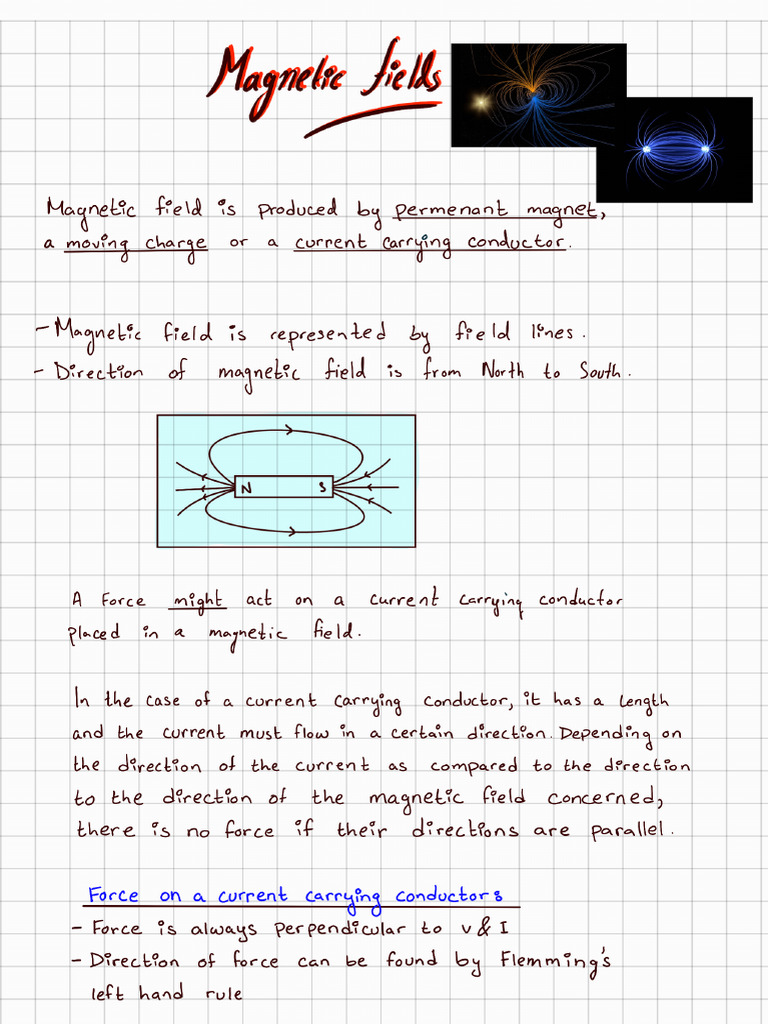 Magnetic fields
Magnetic field is produced by permenant magnet,
a moving charge or a current carrying conductor.
- Magnetic field is represented by field lines.
- Direction of magnetic field is from North to South.
N S
A force might act on a current carrying conductor
placed in a magnetic field.
In the case of a current carrying conductor, it has a length
and the current must flow in a certain direction. Depending on
the direction of the current as compared to the direction
to the direction of the magnetic field concerned,
there is no force if their directions are parallel.
Force on a current carrying conductor:
- Force is always perpendicular to v & I
- Direction of force can be found by Flemming's
left hand rule